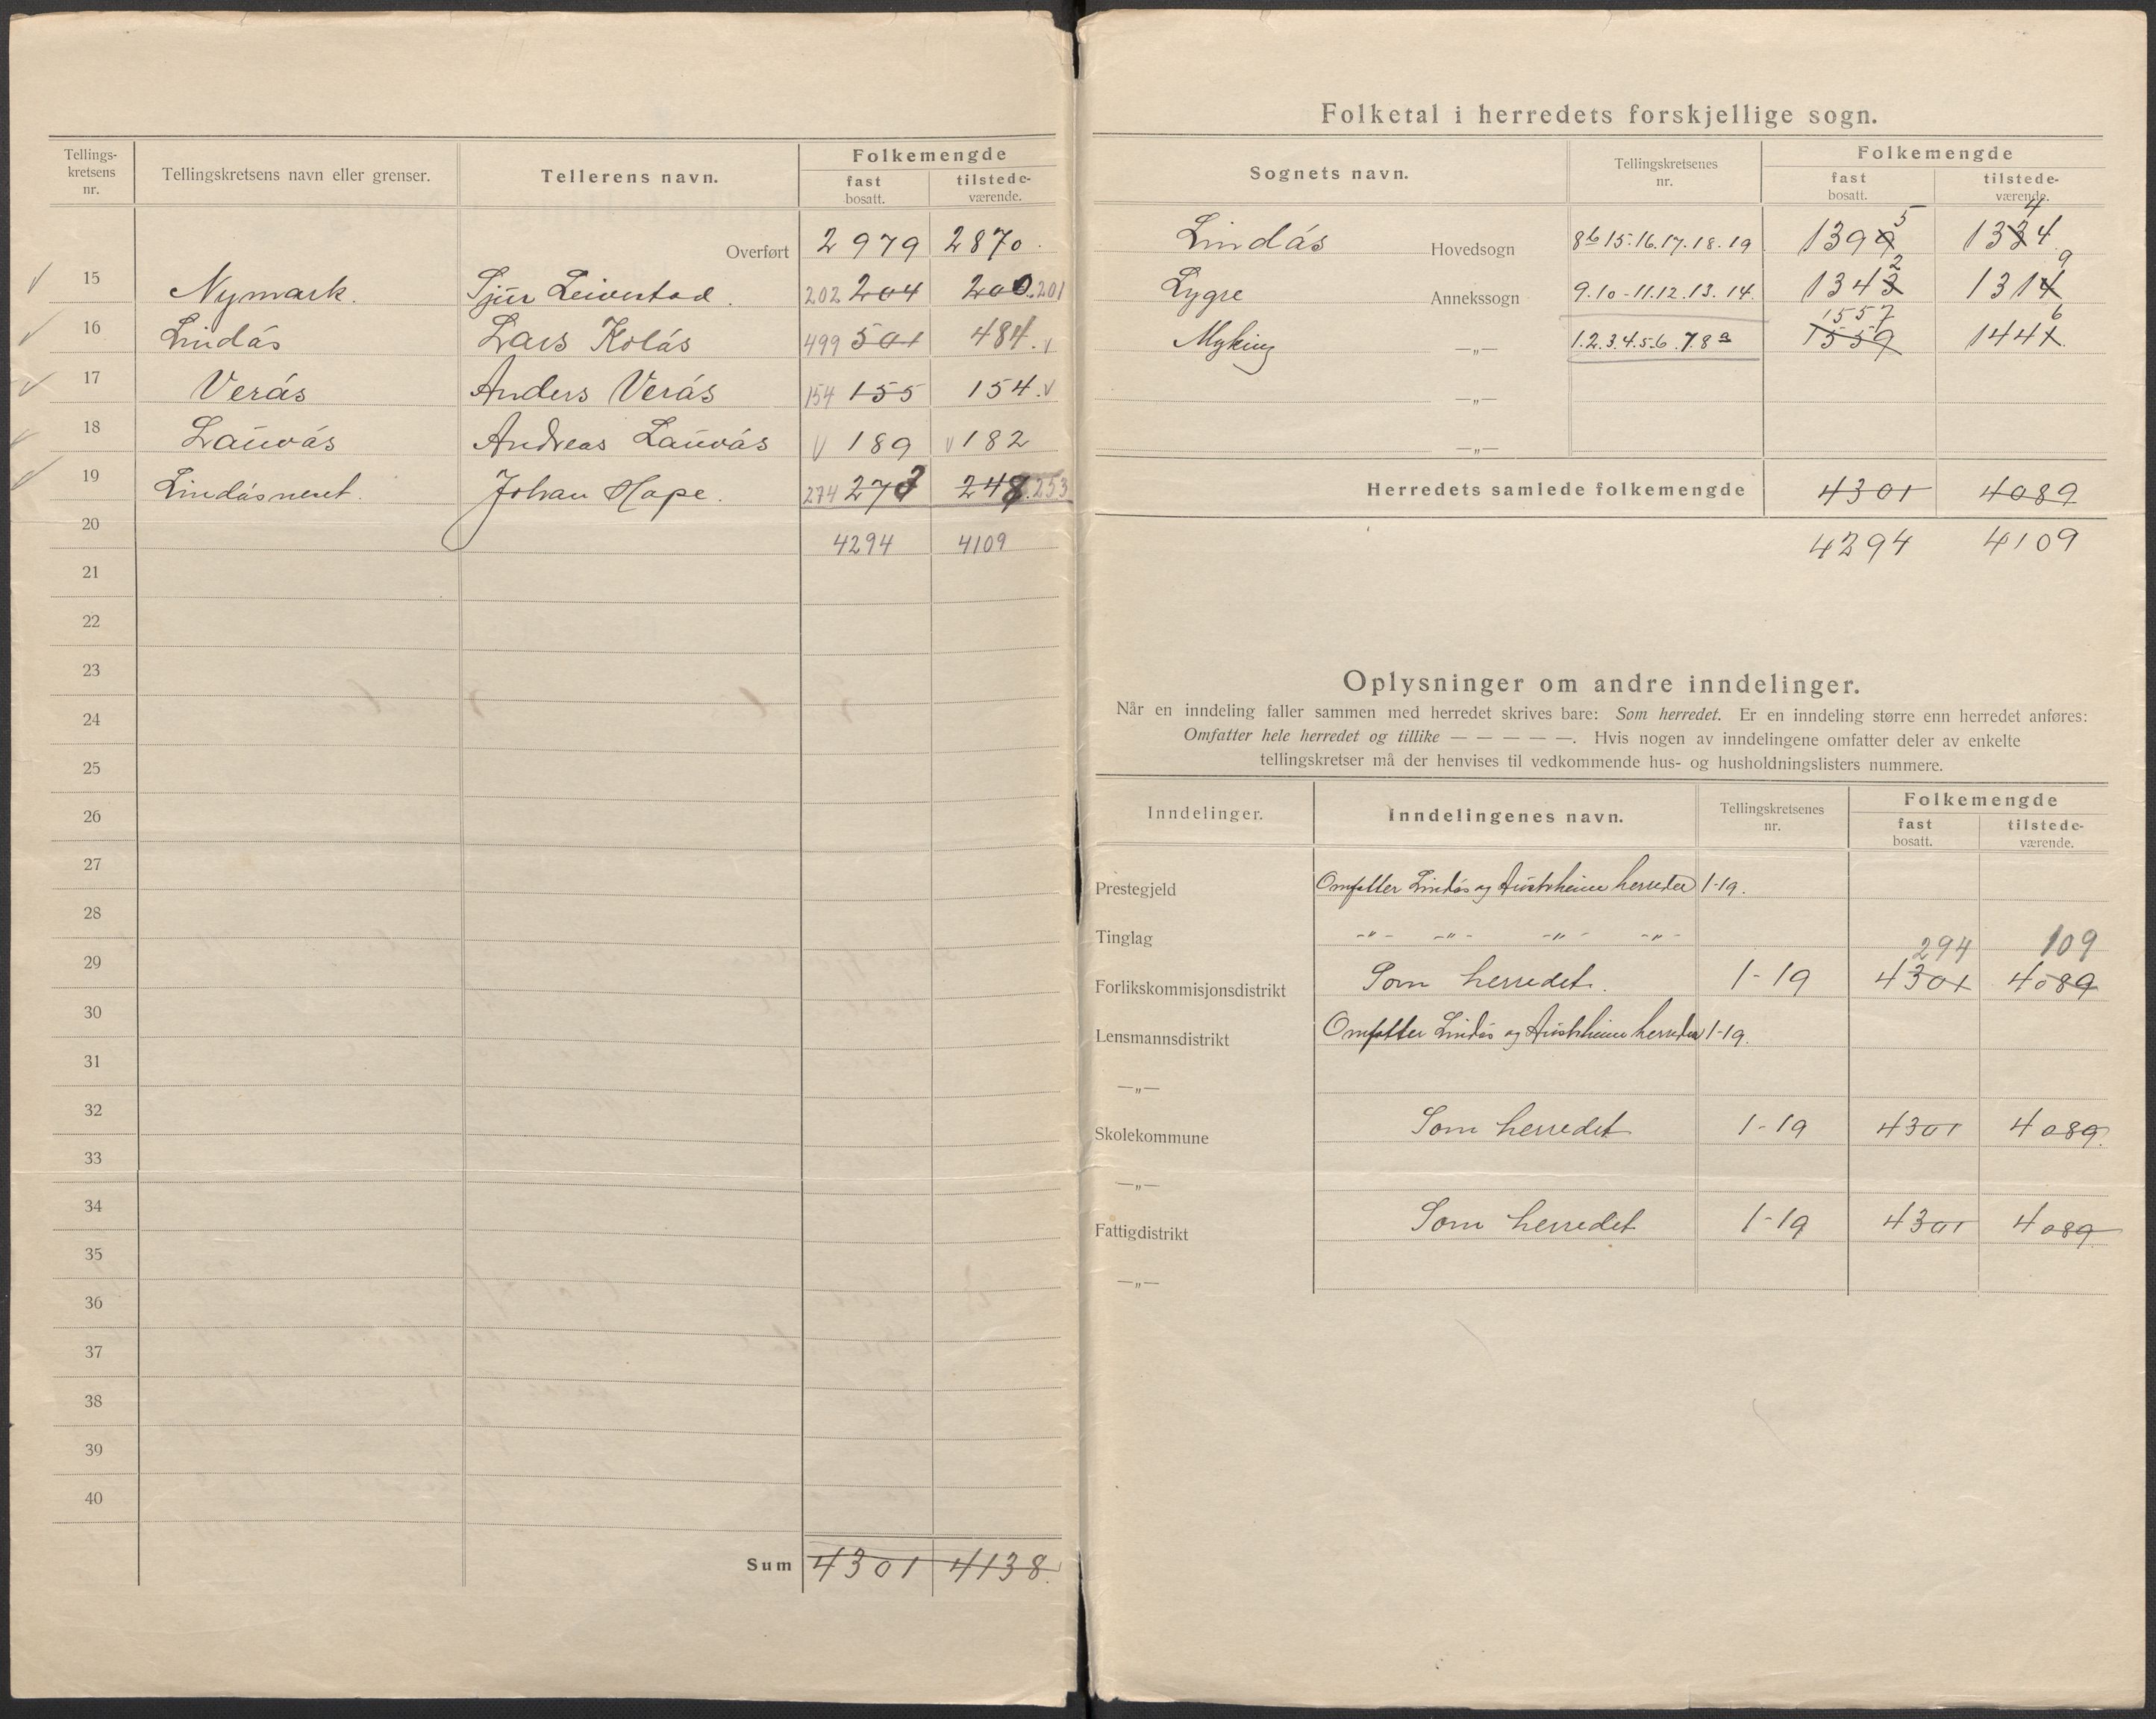 Tellings-
kretsens
nr.
Tellingskretsens navn eller grenser.
Tellerens navn.
Folkemengde
fast
bosatt.
tilstede-
værende.
Overført 2979 2870.
15 Nymark. Sjur Leivestad. 202 204 200. 201
16 Lindás Lars Kolás 499 501 484. v
17 Verás Anders Verás 154 155 154. v
18 Lauvás Andreas Lauvás v 189 v 182
19 Johan Hope. 274 253
20 4294 4109
21
22
23
24
25
26
27
28
29
30
31
32
33
34
35
36
37
38
39
40
Sum 4301 4138.
Folketal i herredets forskjellige sogn.
Sognets navn.
Tellingskretsenes
nr.
Folkemengde
fast
bosatt.
tilstede-
værende.
Lindás Hovedsogn 8b 15. 16. 17. 18. 19 1399 5 1334 4
Lygre Annekssogn 9. 10 - 11. 12. 13. 14. 1343 2 1314 9
Myking —„— 1. 2. 3. 4. 5. 6. 7. 8a 1559 1557 144 6
—„—
—„—
Herredets samlede folkemengde 4301 4089
4294 4109
Oplysninger om andre inndelinger.
Når en inndeling faller sammen med herredet skrives bare: Som herredet. Er en inndeling større enn herredet anføres:
Omfatter hele herredet og tillike — — — — —. Hvis nogen av inndelingene omfatter deler av enkelte
tellingskretser må der henvises til vedkommende hus- og husholdningslisters nummere.
Inndelinger.
Inndelingenes navn.
Tellingskretsenes
nr.
Folkemengde
fast
bosatt.
tilstede-
værende.
Prestegjeld Omfatter Lindás og Austrheim herreder 1-19.
Tinglag -„- -„- -„- -„-
294 109
Forlikskommisjonsdistrikt Som herredet. 1-19 4301 4089
Lensmannsdistrikt Omfatter Lindás og Austrheim herreder 1-19.
—„—
Skolekommune Som herredet 1-19 4301 4089.
—„—
Fattigdistrikt Som herredet 1-19 4301 4089.
—„—